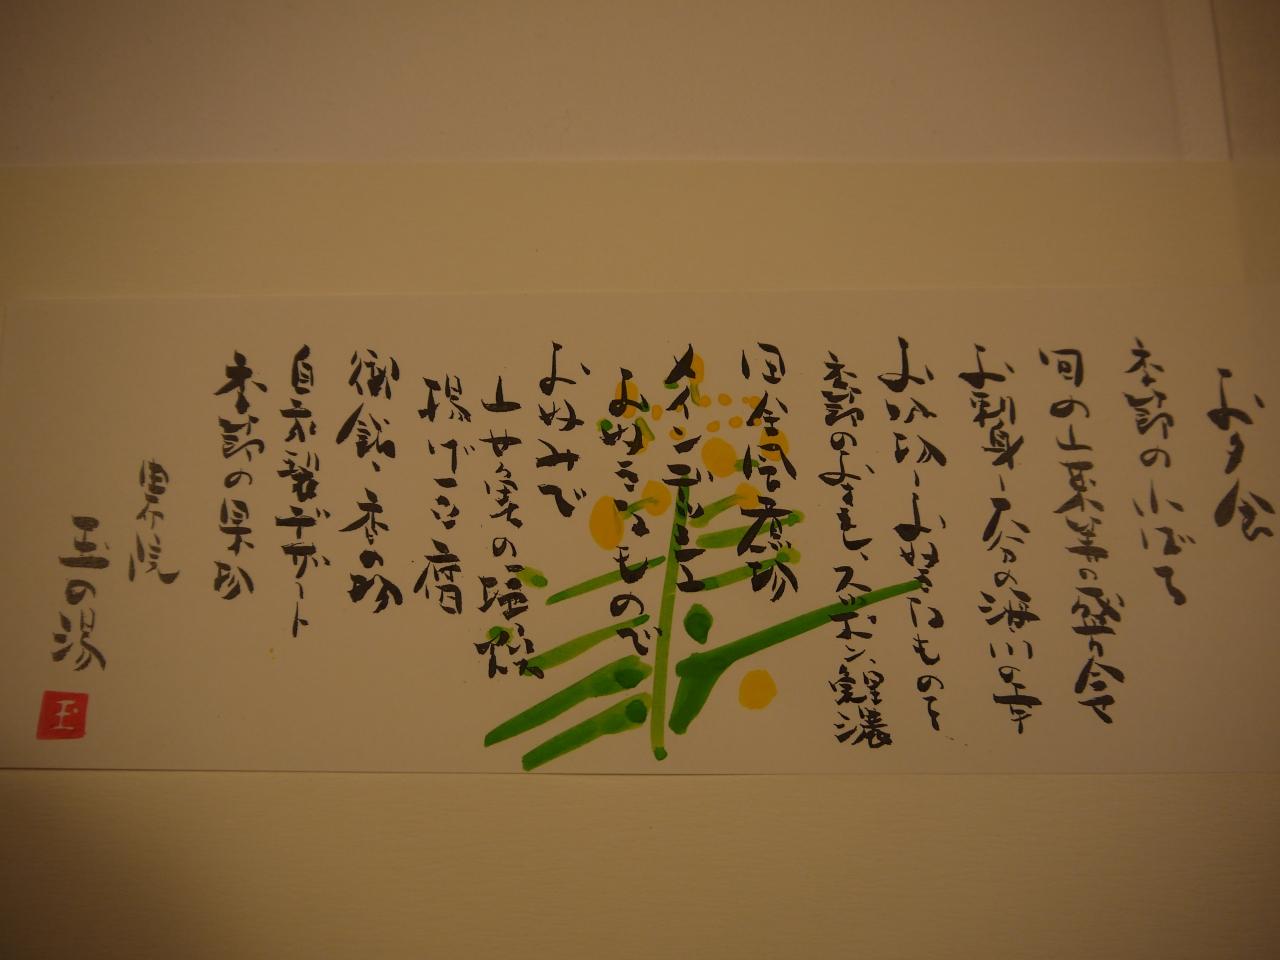 お夕食
季節の小ばち
旬の山菜等の盛合せ
お刺身－大分の海川の幸
お吸物－お好きなものを
季節のよきもの、スッポン、鯉濃
田舎風煮物
メインデッシュ
お好きなもので
およみで
山女魚の塩焼
揚げ豆腐
御飯、香の物
自家製デザート
季節の果物
由布院
玉の湯
玉